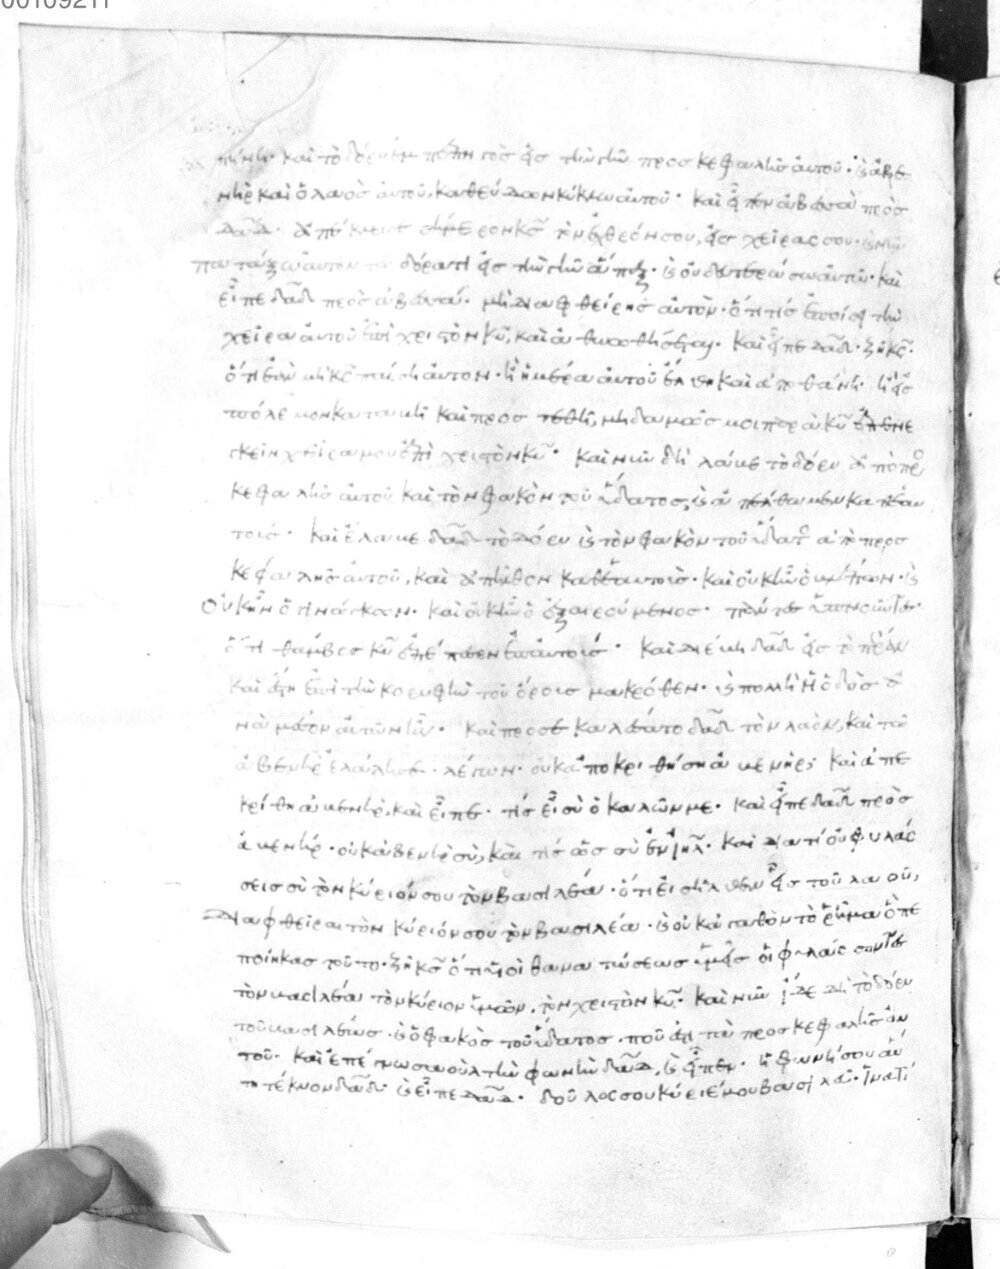 00109211
καὶ τὸ δόρυ ἐμπεπηγὸς εἰς τὴν γῆν πρὸς κεφαλῆς αὐτοῦ· καὶ ἀβε
νὴρ καὶ ὁ λαὸς αὐτοῦ, καθεύδων κύκλω αὐτοῦ· καὶ εἶπεν ἀβεσσὰ πρὸς
δαδ· σήμερον κς τὸν ἐχθρόν σου, εἰς χεῖρας σου· καὶ νῦν
πατάξω αὐτὸν τῶ δόρατι εἰς τὴν γῆν ἅπαξ· καὶ οὐ δευτερώσω αὐτῶ· καὶ
εἶπε δαδ πρὸς ἀβεσσά· μὴ διαφθείρης αὐτὸν· ὅτι τίς ἐποίσει τὴν
χεῖρα αὐτοῦ ἐπὶ χριστὸν κυ, καὶ ἀθωωθήσεται· καὶ εἶπε δαδ· ζῆ κς·
ὅτι ἐὰν μὴ κς παίση αὐτὸν· ἢ ἡ ἡμέρα αὐτοῦ ἔλθη καὶ ἀποθάνη· ἢ εἰς
πόλεμον καταβῆ καὶ προστεθῆ, μηδαμῶς μοι παρὰ κυ ἐπενε
γκεῖν χεῖρα μου ἐπὶ χριστὸν κυ· καὶ νῦν δὴ λάβε τὸ δόρυ ἀπὸ πρὸ
κεφαλῆς αὐτοῦ καὶ τὸν φακὸν τοῦ ὕδατος, καὶ ἀπέλθωμεν καθ' ἑαυ
τούς· καὶ ἔλαβε δαδ τὸ δόρυ καὶ τὸν φακὸν τοῦ ὕδατο ἀπὸ προς
κεφαλῆς αὐτοῦ, καὶ ἀπῆλθον καθ' ἑαυτοὺς· καὶ οὐκ ἦν ὁ βλέπων· καὶ
οὐκ ἦν ὁ γινώσκων· καὶ οὐκ ἦν ὁ ἐξεγειρόμενος· πάντες ὑπνοῦντες·
ὅτι θάμβος κυ ἐπέπεσεν ἐπ' αὐτούς· καὶ διέβη δαδ εἰς τὸ πέραν
καὶ ἔστη ἐπὶ τὴν κορυφὴν τοῦ ὄρους μακρόθεν· καὶ πολλὴ ἡ ὁδὸς ἀ
νὰ μέσον αὐτῶν ἦν· καὶ προσεκαλέσατο δαδ τὸν λαὸν, καὶ τῶ
ἀβενὴρ ἐλάλησε λέγων· οὐκ ἀποκριθήση ἀβενήρ; καὶ ἀπε
κρίθη ἀβενὴρ, καὶ εἶπε· τίς εἶ σὺ ὁ καλῶν με· καὶ εἶπε δαδ πρὸς
ἀβενήρ· οὐκ ἀβενὴρ σὺ, καὶ τίς ὡς σὺ ἐν ιηλ· καὶ διατί οὐ φυλάς
σεις σὺ τὸν κύριόν σου τὸν βασιλέα· ὅτι εἰσῆλθεν εἷς τοῦ λαοῦ,
διαφθεῖραι τὸν κύριόν σου τὸν βασιλέα· καὶ οὐκ ἀγαθὸν τὸ ῥῆμα ὃ πε
ποίηκας τοῦτο· ζῆ κς ὅτι υἱοὶ θανατώσεως ὑμεῖς οἱ φυλάσσοντες
τὸν βασιλέα τὸν κύριον ὑμῶν, τὸν χριστὸν κυ· καὶ νῦν ἴδε δὴ τὸ δόρυ
τοῦ βασιλέως· καὶ ὁ φακὸς τοῦ ὕδατος· ποῦ ἐστι τὰ πρὸς κεφαλῆς αὐ
τοῦ· καὶ ἐπέγνω σαοὺλ τὴν φωνὴν δαδ, καὶ εἶπεν· ἡ φωνή σου αὕ
τη τέκνον δαδ· καὶ εἶπε δαδ· δοῦλος σου κύριέ μου βασιλεῦ· ἱνατί